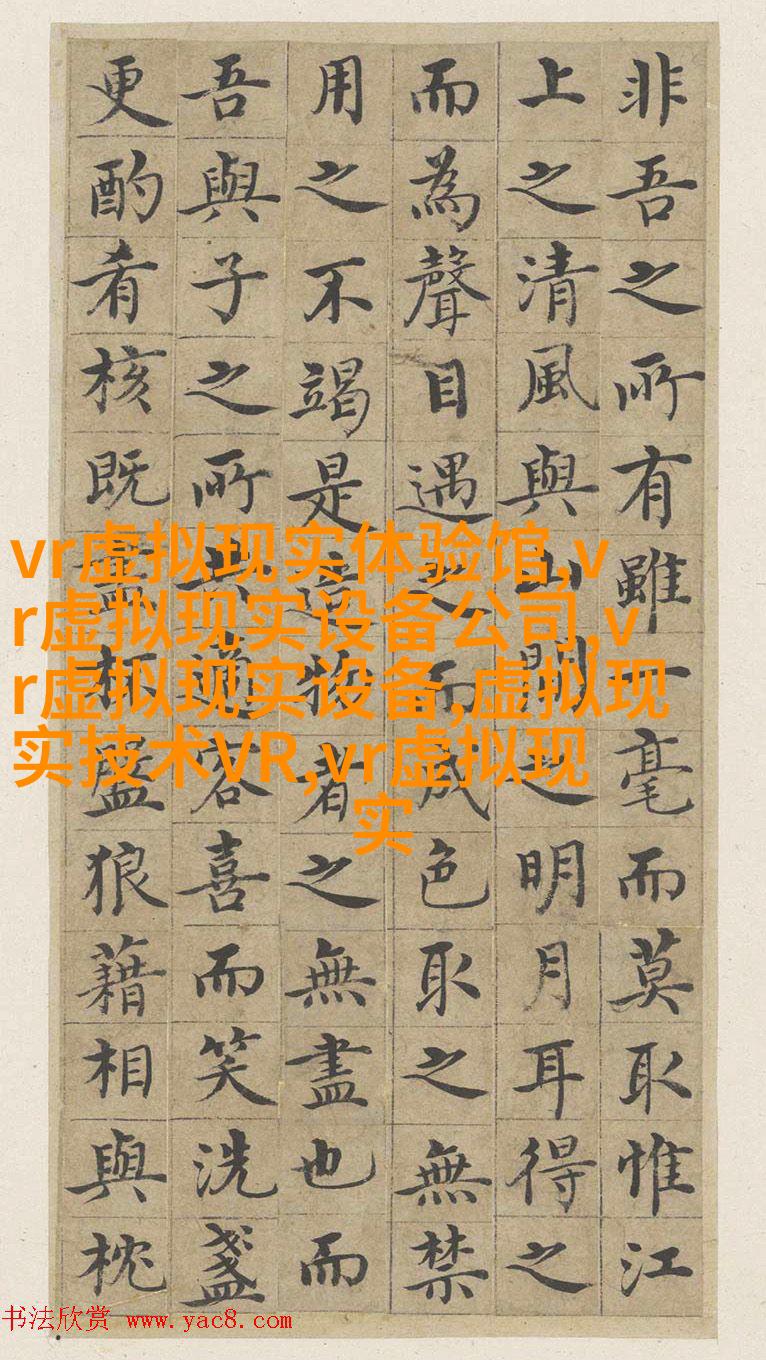 非吾之所有雖一毫而莫取惟江
上之清風與山間之明月耳得之
而為聲目遇之而成色取之無禁
用之不竭是造物者之無盡也而
吾與子之所共適客喜而笑洗盞
更酌肴核既盡杯盤狼藉相與枕
vr虚拟现实体验馆,v
r虚拟现实设备公司,v
r虚拟现实设备,虚拟现
实技术VR,vr虚拟现
实
书法欣赏 www.yac8.com